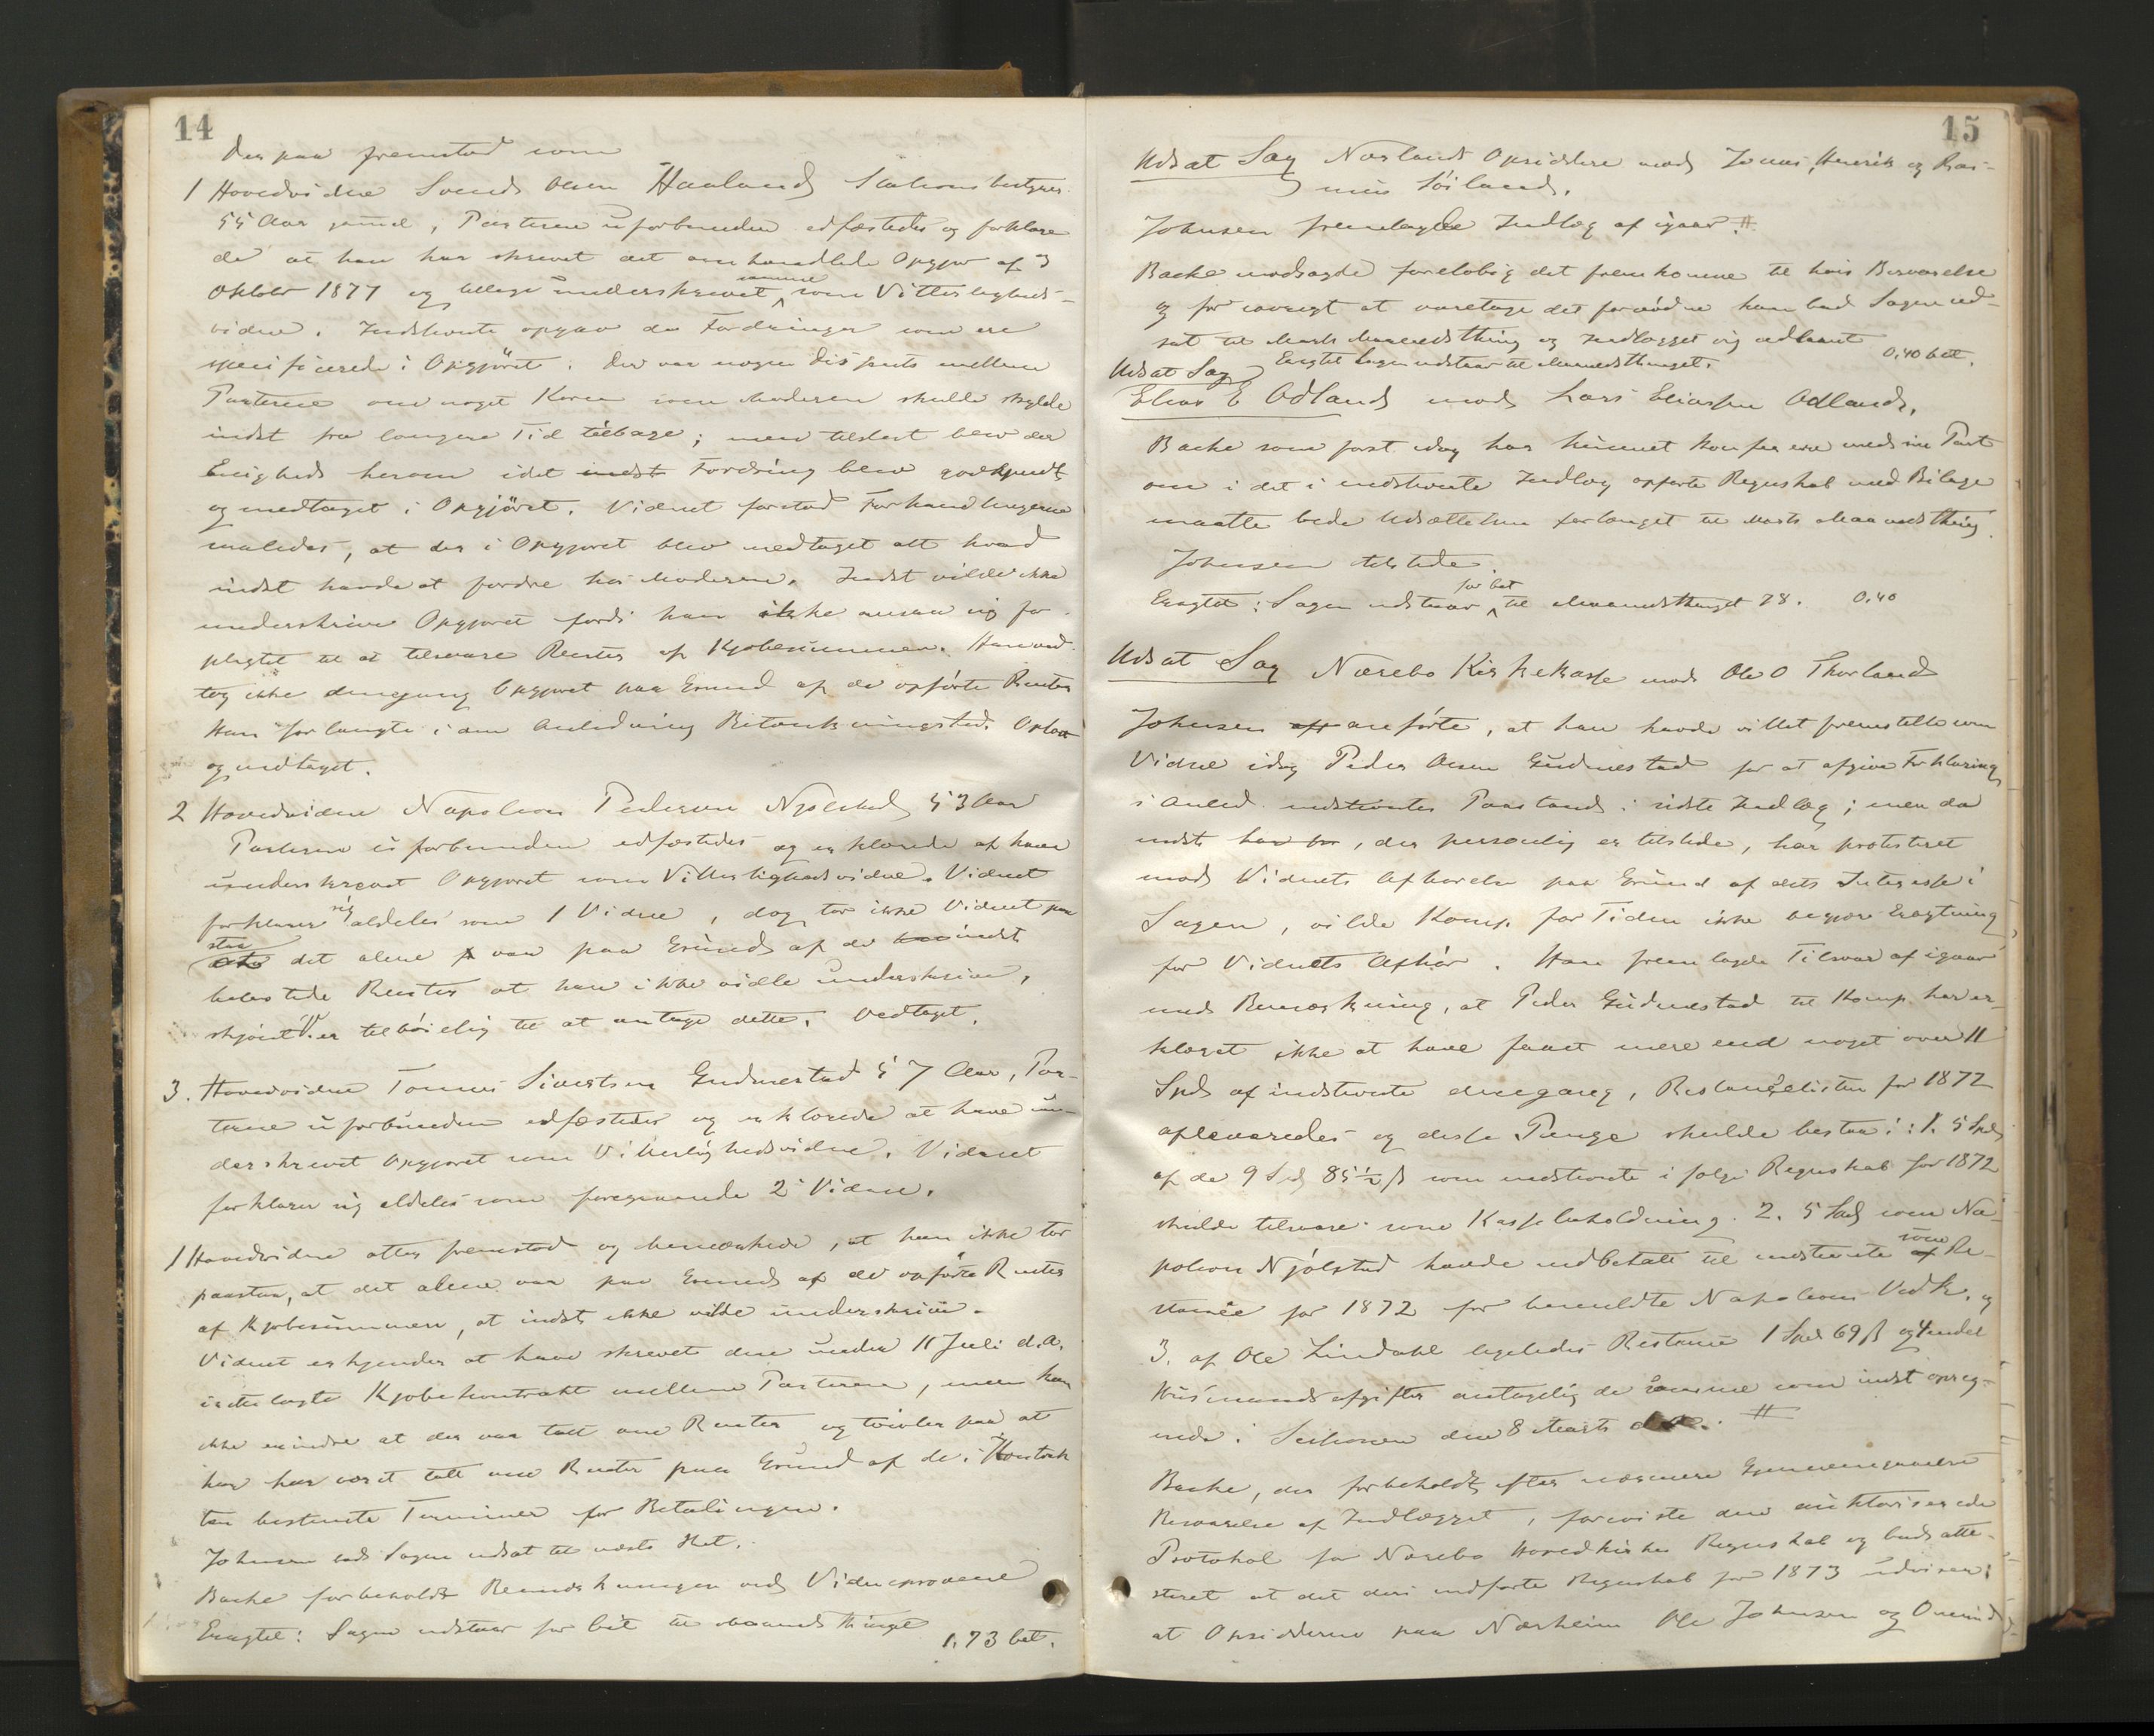 14
Derpaa fremstod som
1 Hovedvidne Svend Olsen Haaland Stationsbestyrer
55 Aar gammel, Parterne uforbunden edfæstedes og forklare
de at han har skrevet det omhandlede Opgjør af 3
Oktober 1877 og tillige underskrevet samme som Vitterligheds-
vidne. Indstevnte opgav de Fordringer som ere
specificerede i Opgjøret. Der var nogen Disputs mellem
Parterne om noget Korn som Moderen skulle skylde
indst fra længere Tid tilbage; men tilslut blev der
Enighed herom idet indst Fordring blev godkjendt
og medtaget i Opgjøret. Vidnet forstod Forhandlingerne
saaledes, at der i Opgjøret blev medtaget alt hvad
indst havde at fordre hos Moderen. Indst vilde ikke
underskrive Opgjøret fordi han ikke ansaa sig for-
pligtet til at tilsvare Renter af Kjøbesummen. Han ved-
tog ikke dengang Opgjøret paa Grund af de opførte Renter
Han forlangte i den Anledning Betænkningstid. Oplæst
og vedtaget.
2 Hovedvidne Napoleon Pedersen Njølstad 53 Aar
Parterne uforbunden edfæstedes og erklærede at have
underskrevet Opgjøret som Vitterlighedsvidne. Vidnet
forklarer sig aldeles som 1 Vidne, dog tør ikke Vidnet paa
staa det alene var paa Grund af de indst
belastede Renter at han ikke vilde underskrive,
skjønt V. er tilbøielig til at antage dette. Vedtaget.
3. Hovedvidne Tønnes Sivertsen Gudmestad 57 Aar, Par-
terne uforbunden edfæstedes og erklærede at have un-
derskrevet Opgjøret som Vitterlighedsvidne. Vidnet
forklarer sig aldeles som foregaaende 2 Vidne.
1 Hovedvidne atter fremstod og bemærkede, at han ikke tør
paastaa, at det alene var paa Grund af de opførte Renter
af Kjøbesummen, at indst ikke vilde underskrive.
Vidnet erkjender at have skrevet den under 11 Juli d.A.
irettelagte Kjøbekontrakt mellem Parterne, men kan
ikke erindre at der var talt om Renter og tvivler paa at
her har været talt om Renter paa Grund af de i Kontrak
ten bestemte Terminer for Betalingen.
Johnsen bad Sagen udsat til næste Thet.
Bache forbeholdt Bemærkninger ved Vidneprovene
Eragtet: Sagen udstaar for bet til Maanedsthinget
1.73 bet.
15
Udsat Sag Nærlands Opsiddere mod Jonas, Henrik og Ras-
mus Söiland.
Johnsen fremlagde Indlæg af igaar. #
Bache modsagde foreløbig det fremkomne til hvis Besvarelse
og for øvrigt at varetage det fornødne han bad Sagen ud-
sat til Marts Maanedsthing og Indlægget sig udlaant
0,40 bet.
Eragtet Sagen udstaar til Maanedsthinget.
Udsat Sag
Elias E Ødland mod Lars Eliassen Ødland.
Bache som først idag har kunnet konferere med sin Part
om i det i indstevnte Indlæg opførte Regnskab med Bilage
maatte bede Udsættelsen forlænget til Marts Maanedsthing.
Johnsen tilstede
Eragtet: Sagen udstaar for bet til Maanedsthinget 78. 0,40
Udsat Sag Nærebø Kirkekasse mod Ole O Thorland
Johnsen anførte, at han havde villet fremstille som
Vidne idag Peder Olsen Gudmestad for at afgive Forklaring
i Anled. indstevntes Paastand i sidste Indlæg; men da
indst, der personlig er tilstede, har protesteret
mod Vidnets Afhørelse paa Grund af dets Interesse i
Sagen, vilde Komp. for Tiden ikke begjære Eragtning
for Vidnets Afhør. Han fremlagde Tilsvar af igaar
med Bemærkning, at Peder Gudmestad til Komp. har er-
klæret ikke at have faaet mere end noget over 11
Spd af indstevnte dengang, Restancelisten for 1872
afleveredes og disse Penge skulde bestaa i: 1. 5 Spd
af de 9 Spd 85½ ß som indstevnte i følge Regnskab for 1872
skulde tilsvare som Kassebeholdning. 2. 5 Spd som Na-
poleon Njölstad havde indbetalt til indstevnte som Re-
stance for 1872 for bemeldte Napoleons Vedk. og
3. af Ole Lindahl ligeledes Restance 1 Spd 69 ß og endel
Husmandsafgifter antagelig de samme som indst opreg-
nede i Sessionen den 8 Marts d. A. #
Bache, der forbeholdt efter nærmere Gjennemgaaelse
Besvarelse af Indlægget, foreviste den auktoriserede
Protokol for Nærebø Hovedkirkes Regnskab og bad atte-
steret at det deri indførte Regnskab for 1873 udviser
at Opsidderne paa Nærheim Ole Johnsen og Omund